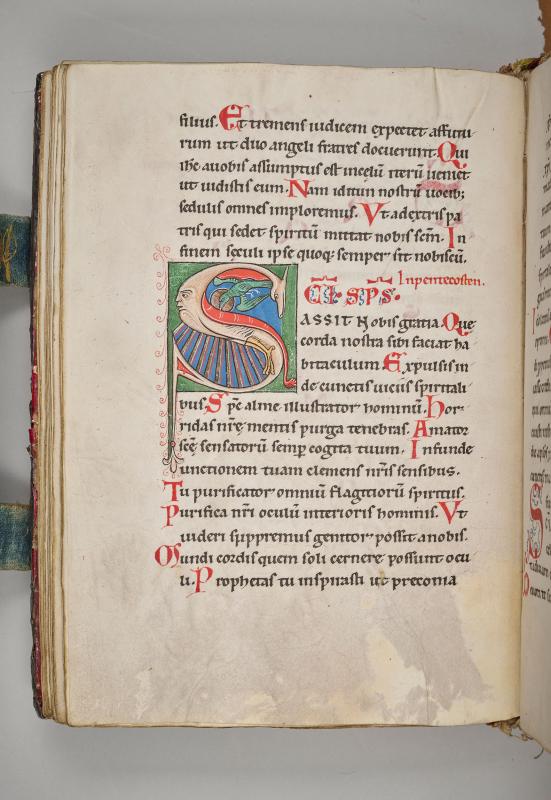 filius. Et tremens iudicem expectet affutu
rum ut duo angeli fratres docuerunt. Qui
ihc auobis assumptus est incelū iterū ueniet
ut uidistis eum. Nam iditun nostrū uocib;
sedulis omnes imploremus. Vt adextris pa
tris qui sedet spiritū mittat nobis scm̄. In
finem seculi ipse quoq; semper sit nobiscū.
In pentecosten.
S CI SPS.
ASSIT Nobis gratia. Que
corda nostra sibi faciat ha
bitaculum. Expulsis in
de cunctis uiciis spiritali
bus. Spc̄ alme illustrator hominū. hor
ridas nrē mentis purga tenebras. Amator
scē sensatorū semp cogita tuum. Infunde
unctionem tuam clemens nrīs sensibus.
Tu purificator omniū flagitiorū spiritus.
Purifica nrī oculū interioris hominis. Vt
uideri suppremus genitor possit anobis.
Mundi cordis quem soli cernere possunt ocu
li. Prophetas tu inspirasti ut preconia